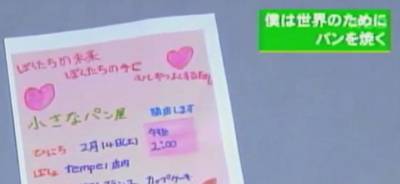 僕は世界のために
パンを焼く
ぼくたちの未来
ぼくたちの手に
小さなパン屋 開店します
ひにち 2月14日(土) 午後 2:00
ばしょ tempei 店内
カップケーキ